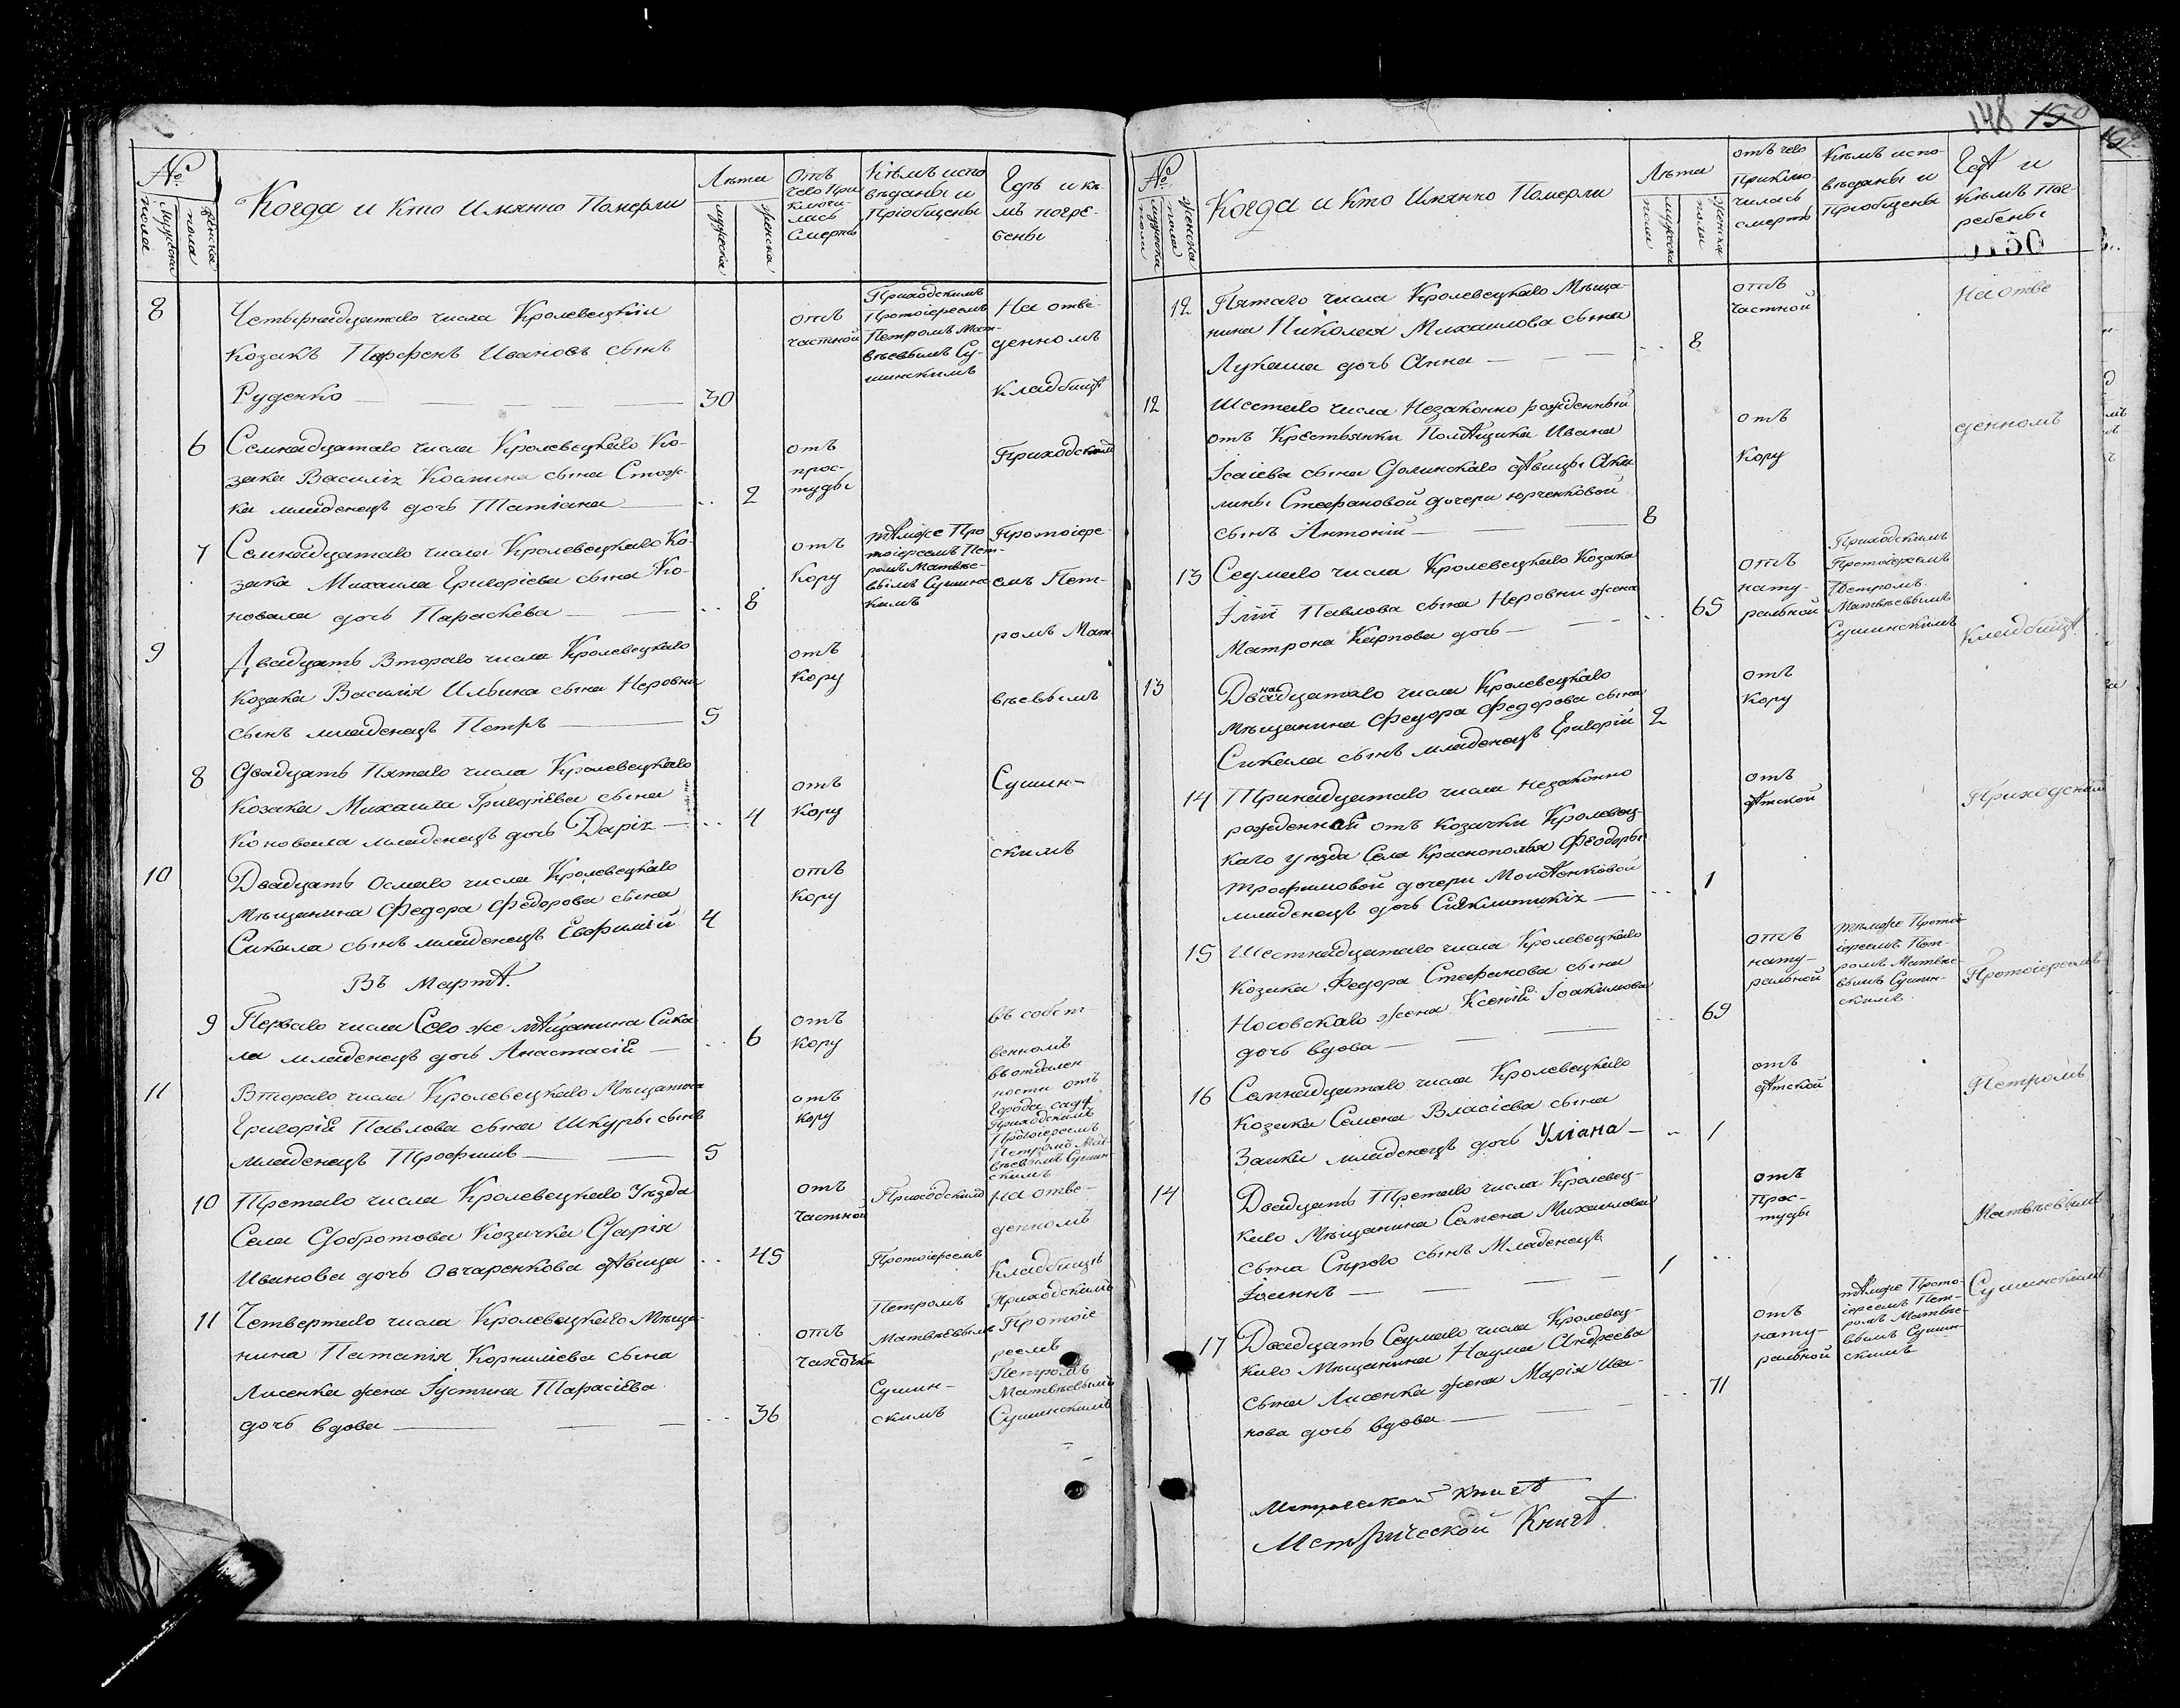 №
мужеска пола
женска пола
Когда и кто имянно Померли
Лѣта
мужеска
женска
Отъ
чего При
ключи-
лась
Смерть
Кѣмъ испо
вѣданы и
Пріобщены
Гдѣ и кѣ-
мъ погре-
бены
8
Четырнадцатаго числа Кролевецкій
Козакъ Парфенъ Ивановъ сынъ
Руденко
30
отъ
частной
Приходскимъ
Протоіереемъ
Петромъ Мат-
вѣевымъ Су-
шинскимъ
На отве-
денномъ
Кладбищѣ
6
Семнадцатаго числа Кролевецкаго Ко-
зака Василія сына Стож-
ка младенецъ дочь Татіана
2
отъ
прос-
туды
Приходским
7
Семнадцатаго числа Кролевецкаго Ко-
зака Михаила Григоріева сына Ко-
новала дочь Параскева
8
отъ
Кору
тѣмже Про
тоіереемъ Пет-
ромъ Матвѣе-
вымъ Сушинс
кимъ
Протоіере-
емъ Пет-
9
Двадцать Втораго числа Кролевецкаго
Козака Василія Ильина сына Неровни
сынъ младенецъ Петръ
5
отъ
Кору
ромъ Мат-
вѣевымъ
8
Двадцать Пятаго числа Кролевецкаго
Козака Михаила Григоріева сына
Коновала младенецъ дочь Дарія
4
отъ
Кору
Сушин-
скимъ
10
Двадцать Осмаго числа Кролевецкаго
Мѣщанина Федора Федорова сына
Сикала сынъ младенецъ Евфимій
4
отъ
Кору
Въ Мартѣ.
9
Перваго числа Сего же мѣщанина Сика-
ла младенецъ дочь Анастасія
6
отъ
Кору
въ собст-
венномъ
въ отдален
ности отъ
Города саду
Приходскимъ
Протоіереемъ
Петромъ Мат-
вѣевымъ Сушин-
скимъ
11
Втораго числа Кролевецкаго Мѣщанина
Григорій Павлова сына Шкуры сынъ
младенецъ Трофимъ
5
отъ
Кору
10
Третаго числа Кролевецкаго Уѣзда
Села Добротова Козачка Дарія
Иванова дочь Овчаренкова дѣвица
45
отъ
Частной
Приходскимъ
Протоіереемъ
Петромъ
Матвѣевымъ
Сушин-
скимъ
На отве-
денномъ
Кладбищѣ
Приходскимъ
Протоіе
реемъ
Петромъ
Матвѣевымъ
Сушинскимъ
11
Четвертаго числа Кролевецкаго Мѣща-
нина Патапія Корниліева сына
Лисенка жена Іустина Тарасіева
дочь вдова
36
отъ
чахотки
148 150
0150
№
мужеска пола
женска пола
Когда и кто имянно Померли
Лѣта
мужеска пола
женска пола
отъ чего
Приклю-
чилась
смерть
Кѣмъ испо-
вѣданы и
Пріобщены
Гдѣ и
Кѣмъ Пог-
ребены
12
Пятаго числа Кролевецкаго Мѣща-
нина Николая Михайлова сына
Лукаша дочь Анна
8
отъ
Частной
На отве-
12
Шестаго числа Незаконно рожденный
отъ Крестьянки Помѣщика Ивана
Ісаіева сына Долинскаго дѣвицы Аку
лины Стефановой дочери Юрченковой
сынъ Антоній
8
отъ
Кору
денномъ
13
Седмаго числа Кролевецкаго Козака
Іліи Павлова сына Неровни жена
Матрона Карпова дочь
65
отъ
нату-
ральной
Приходскимъ
Протоіереемъ
Петромъ
Матвѣевымъ
Сушинскимъ
Кладбищѣ
13
Двана
дцатаго числа Кролевецкаго
Мѣщанина Федора Федорова сына
Сикала сынъ младенецъ Григорій
2
отъ
Кору
14
Тринадцатаго числа незаконно
рожденной отъ Козачки Кролевец-
каго уѣзда Села Краснополья Феодоры
Трофимовой дочери Мойсѣенковой
младенецъ дочь Синклитикія
1
отъ
дѣтской
Приходским
15
Шестнадцатаго числа Кролевецкаго
Козака Федора Стефанова сына
Носовскаго жена Ксенія Іоакимова
дочь вдова
69
отъ
нату-
ральной
тѣмже Прото
іереемъ Пет-
ромъ Матвѣе-
вымъ Сушин-
скимъ
Протоіереемъ
16
Семнадцатаго числа Кролевецкаго
Козака Семена Власіева сына
Заики младенецъ дочь Уліана
1
отъ
дѣтской
Петромъ
14
Двадцать Третаго числа Кролевец-
каго Мѣщанина Семена Михайлова
сына Сѣраго сынъ Младенецъ
Іоаннъ
1
отъ
Прос-
туды
Матвѣевымъ
17
Двадцать Седмаго числа Кролевец-
каго Мѣщанина Наума Андреева
сына Лисенка жена Марія Ива-
нова дочь вдова
71
отъ
нату-
ральной
тѣмже Прото-
іереемъ Пет-
ромъ Матвѣе-
вымъ Сушин-
скимъ
Сушинскимъ
Метрической Книгѣ
Метрической Книгѣ